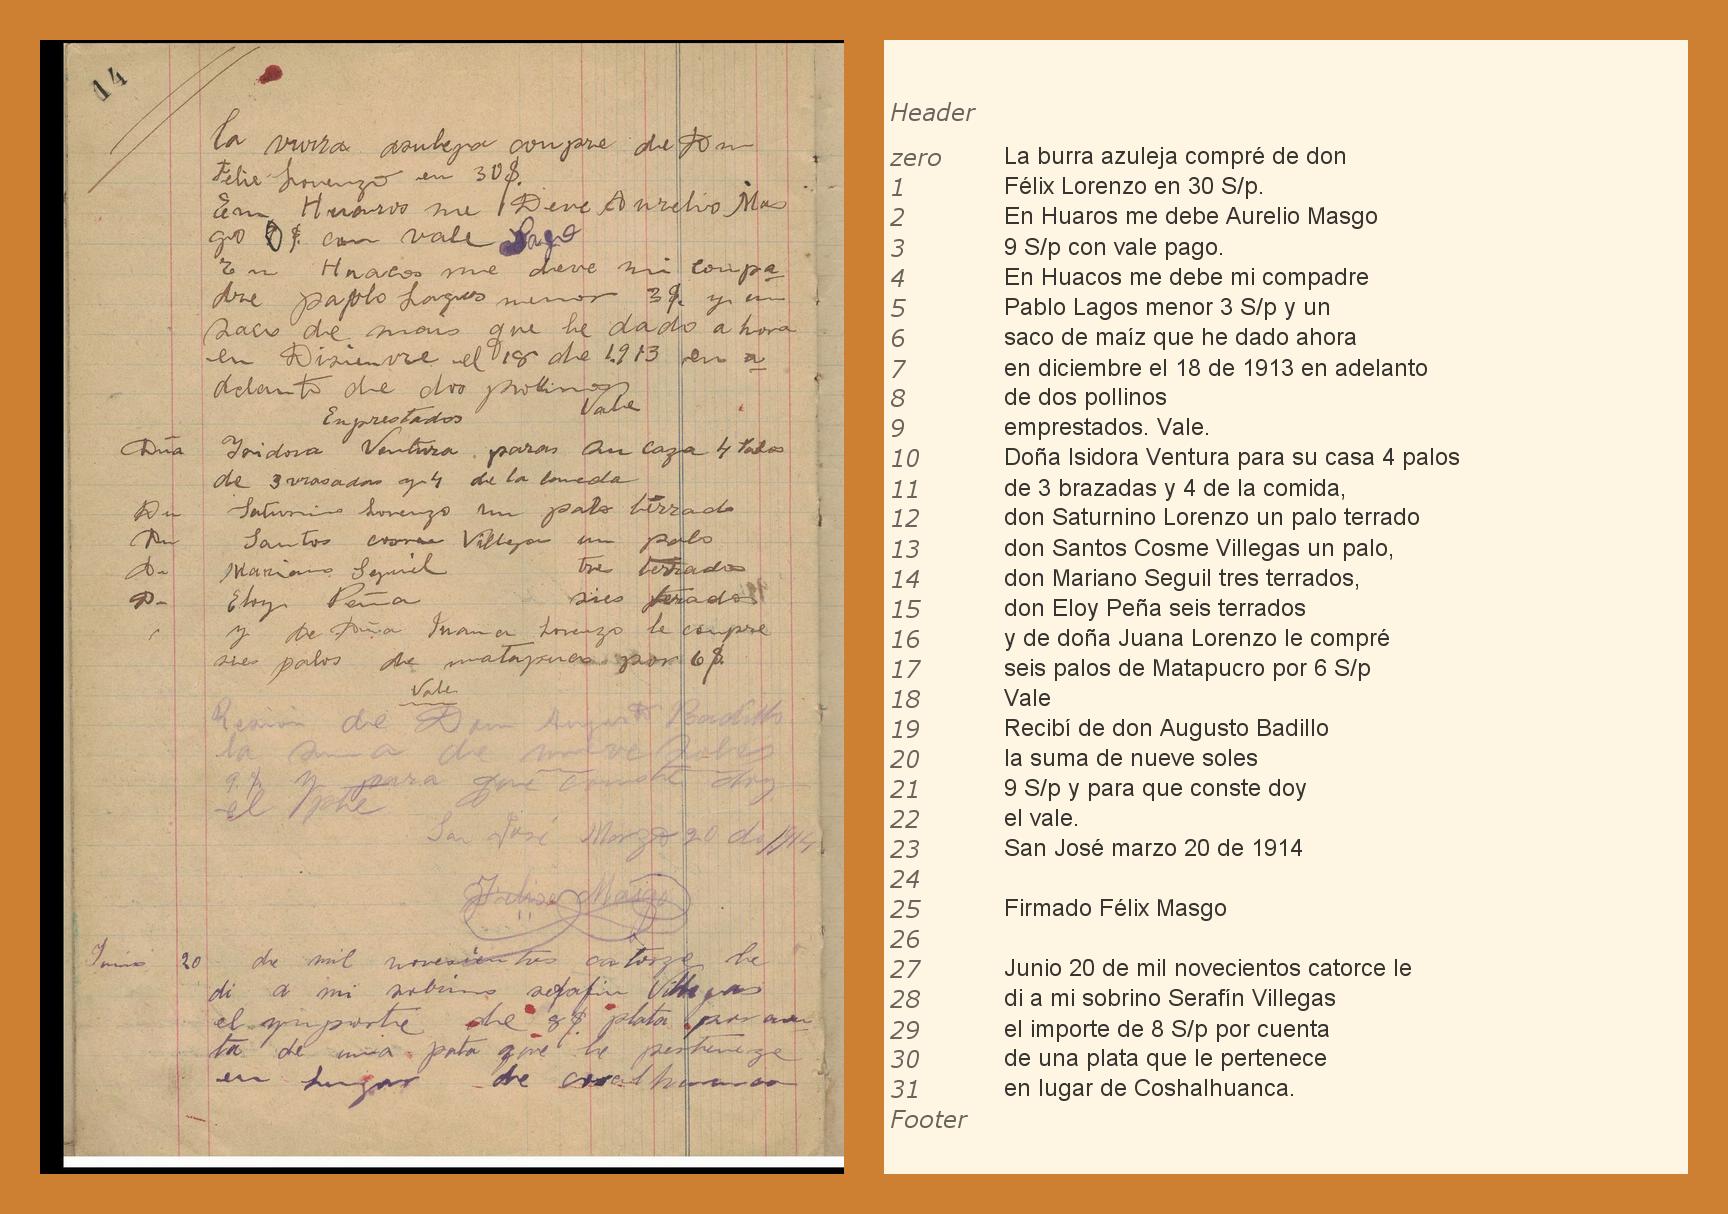 14
la vurra asuleja conpre de Don
Felis Lorenzo en 30$.
Em Huaros me Deve Aurelio Mas
go 9$. con vale Pago
En Huacos me deve mi conpa
dre pablo Lagos menor 3$. y un
saco de mais que he dado ahora
en Disienvre el 18 de 1913 en a
delanto de dos pollinos
Enprestados Vale
Dña Isidora Ventura paras su caza 4 Palos
de 3 vrasadas y 4 de la
Dn Saturnino Lorenzo un palo terrado
Dn Santos Villegas un palo
Dn Mariano Seguil tre terrados
Dn Eloy Peña sies terados
y de Doña Juana Lorenzo le conpre
sies palos de matapucro por 6$.
Vale
Resivi de Don Augusto Badillo
la suma de nueve soles
9$. y para que conste doy
el
San José Marzo 20 de 1914
Masgo
Junio 20 de mil novesientos catorze le
di a mi sobrino sefafin Villegas
el ymporte de 8$. plata por cuen
ta de una pata que le perteneze
en lugar de
Header
zero La burra azuleja compré de don
1 Félix Lorenzo en 30 S/p.
2 En Huaros me debe Aurelio Masgo
3 9 S/p con vale pago.
4 En Huacos me debe mi compadre
5 Pablo Lagos menor 3 S/p y un
6 saco de maíz que he dado ahora
7 en diciembre el 18 de 1913 en adelanto
8 de dos pollinos
9 emprestados. Vale.
10 Doña Isidora Ventura para su casa 4 palos
11 de 3 brazadas y 4 de la comida,
12 don Saturnino Lorenzo un palo terrado
13 don Santos Cosme Villegas un palo,
14 don Mariano Seguil tres terrados,
15 don Eloy Peña seis terrados
16 y de doña Juana Lorenzo le compré
17 seis palos de Matapucro por 6 S/p
18 Vale
19 Recibí de don Augusto Badillo
20 la suma de nueve soles
21 9 S/p y para que conste doy
22 el vale.
23 San José marzo 20 de 1914
24
25 Firmado Félix Masgo
26
27 Junio 20 de mil novecientos catorce le
28 di a mi sobrino Serafín Villegas
29 el importe de 8 S/p por cuenta
30 de una plata que le pertenece
31 en lugar de Coshalhuanca.
Footer